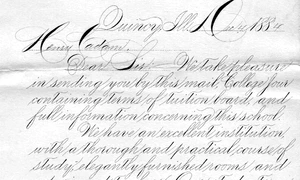 Quincy, Ill. Dec 10, 188
Henry Eadam.
Dear Sir: We take pleasure
in sending you by this mail, College Jour
containing terms of tuition, board, and
full information concerning this school.
We have an excellent institution,
with a thorough and practical course of
study, elegantly furnished rooms, and